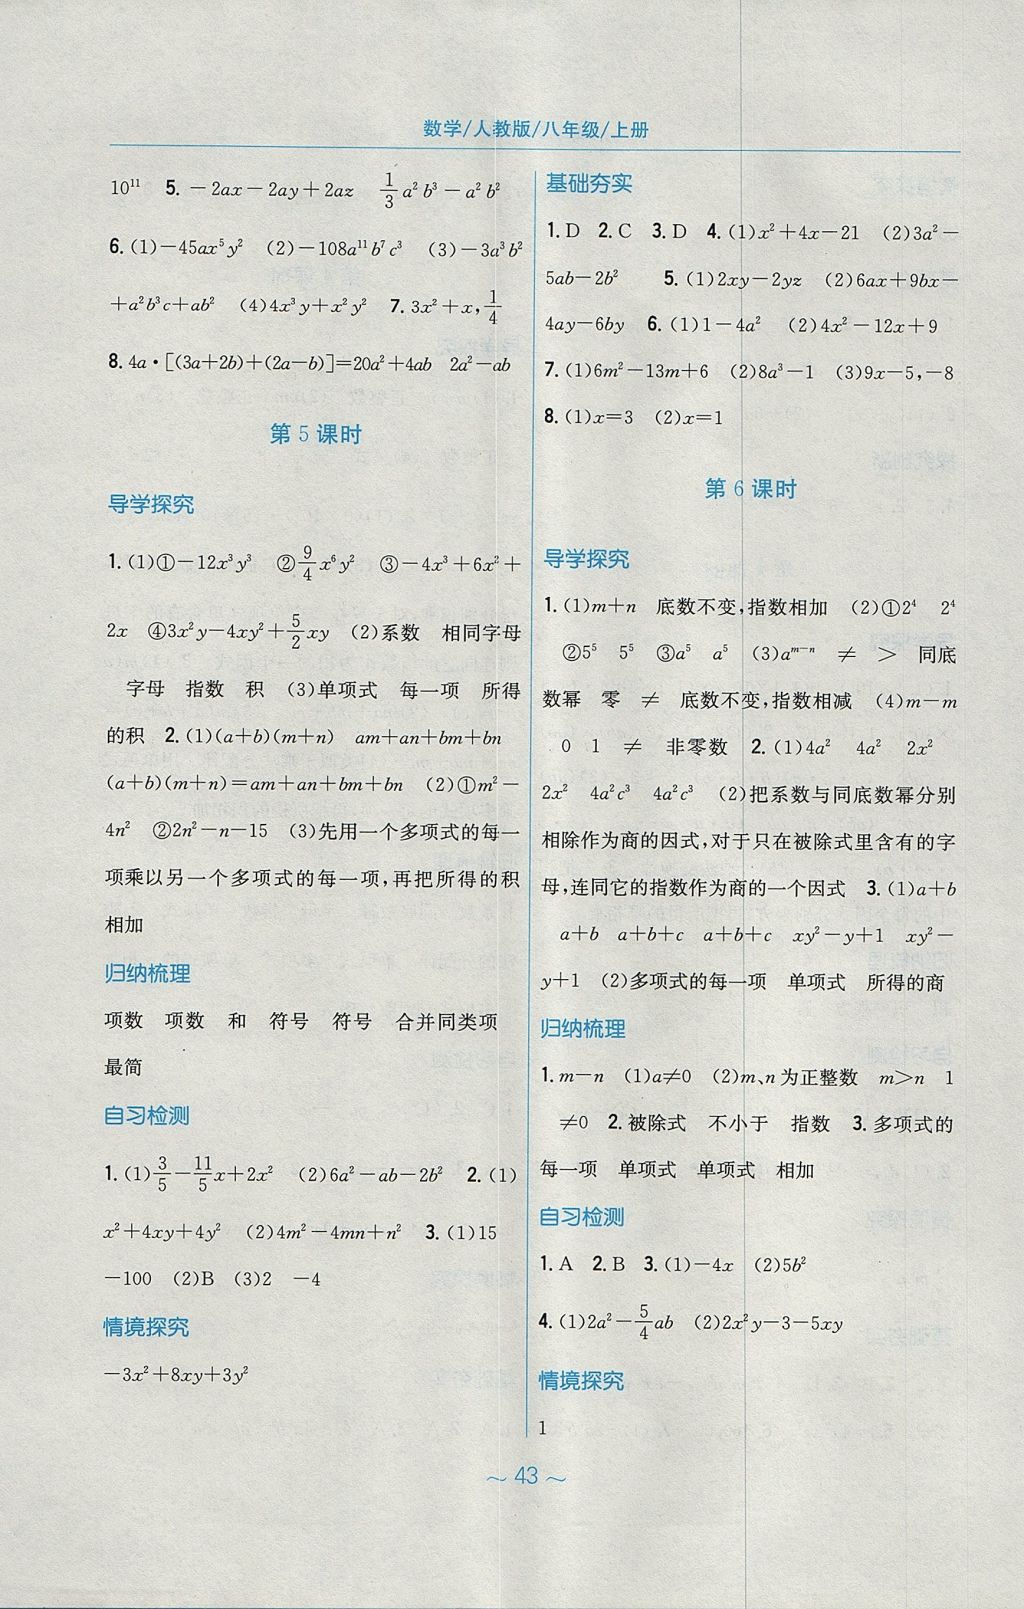 数学/人教版/八年级/上册
10¹¹ 5. －2ax－2ay＋2az 1/3 a²b³－a²b²
6. (1)－45ax⁵y² (2)－108a¹¹b⁷c³ (3)－3a³b²
＋a²b³c＋ab² (4)4x³y＋x²y² 7. 3x²＋x, 1/4
8. 4a·[(3a＋2b)＋(2a－b)]＝20a²＋4ab 2a²－ab
第 5 课时
导学探究
1. (1)①－12x³y³ ②9/4 x⁶y² ③－4x³＋6x²＋
2x ④3x²y－4xy²＋5/2 xy (2)系数 相同字母
字母 指数 积 (3)单项式 每一项 所得
的积 2. (1)(a＋b)(m＋n) am＋an＋bm＋bn
(a＋b)(m＋n)＝am＋an＋bm＋bn (2)①m²－
4n² ②2n²－n－15 (3)先用一个多项式的每一
项乘以另一个多项式的每一项,再把所得的积
相加
归纳梳理
项数 项数 和 符号 符号 合并同类项
最简
自习检测
1. (1)3/5－11/5 x＋2x² (2)6a²－ab－2b² 2. (1)
x²＋4xy＋4y² (2)4m²－4mn＋n² 3. (1)15
－100 (2)B (3)2 －4
情境探究
－3x²＋8xy＋3y²
基础夯实
1. D 2. C 3. D 4. (1)x²＋4x－21 (2)3a²－
5ab－2b² 5. (1)2xy－2yz (2)6ax＋9bx－
4ay－6by 6. (1)1－4a² (2)4x²－12x＋9
7. (1)6m²－13m＋6 (2)8a³－1 (3)9x－5,－8
8. (1)x＝3 (2)x＝1
第 6 课时
导学探究
1. (1)m＋n 底数不变,指数相加 (2)①2⁴ 2⁴
②5⁵ 5⁵ ③a⁵ a⁵ (3)aᵐ⁻ⁿ ≠ ＞ 同底
数幂 零 ≠ 底数不变,指数相减 (4)m－m
0 1 ≠ 非零数 2. (1)4a² 4a² 2x²
2x² 4a²c³ 4a²c³ (2)把系数与同底数幂分别
相除作为商的因式,对于只在被除式里含有的字
母,连同它的指数作为商的一个因式 3. (1)a＋b
a＋b a＋b＋c a＋b＋c xy²－y＋1 xy²－
y＋1 (2)多项式的每一项 单项式 所得的商
归纳梳理
1. m－n (1)a≠0 (2)m、n为正整数 m＞n 1
≠0 2. 被除式 不小于 指数 3. 多项式的
每一项 单项式 单项式 相加
自习检测
1. A 2. B 3. (1)－4x (2)5b²
4. (1)2a²－5/4 ab (2)2x²y－3－5xy
情境探究
1
～ 43 ～